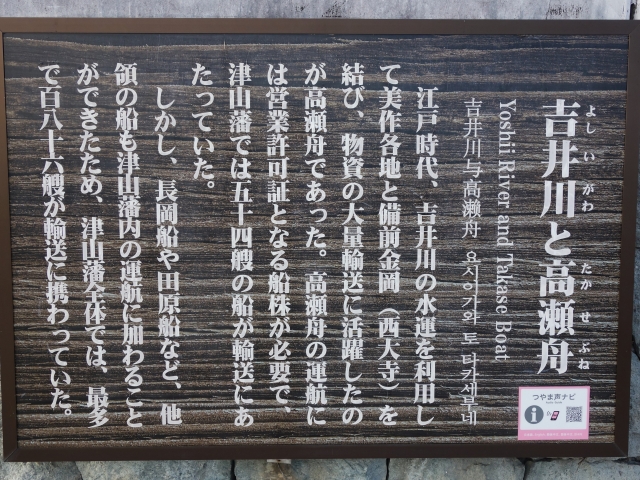 吉井川と高瀬舟
よしいがわ
たかせぶね
Yoshii River and Takase Boat
吉井川与高瀬舟 요시이가와 토 타카세부네
江戸時代、吉井川の水運を利用し
て美作各地と備前金岡（西大寺）を
結び、物資の大量輸送に活躍したの
が高瀬舟であった。高瀬舟の運航に
は営業許可証となる船株が必要で、
津山藩では五十四艘の船が輸送にあ
たっていた。
しかし、長岡船や田原船など、他
領の船も津山藩内の運航に加わること
ができたため、津山藩全体では、最多
で百八十六艘が輸送に携わっていた。
つやま声ナビ